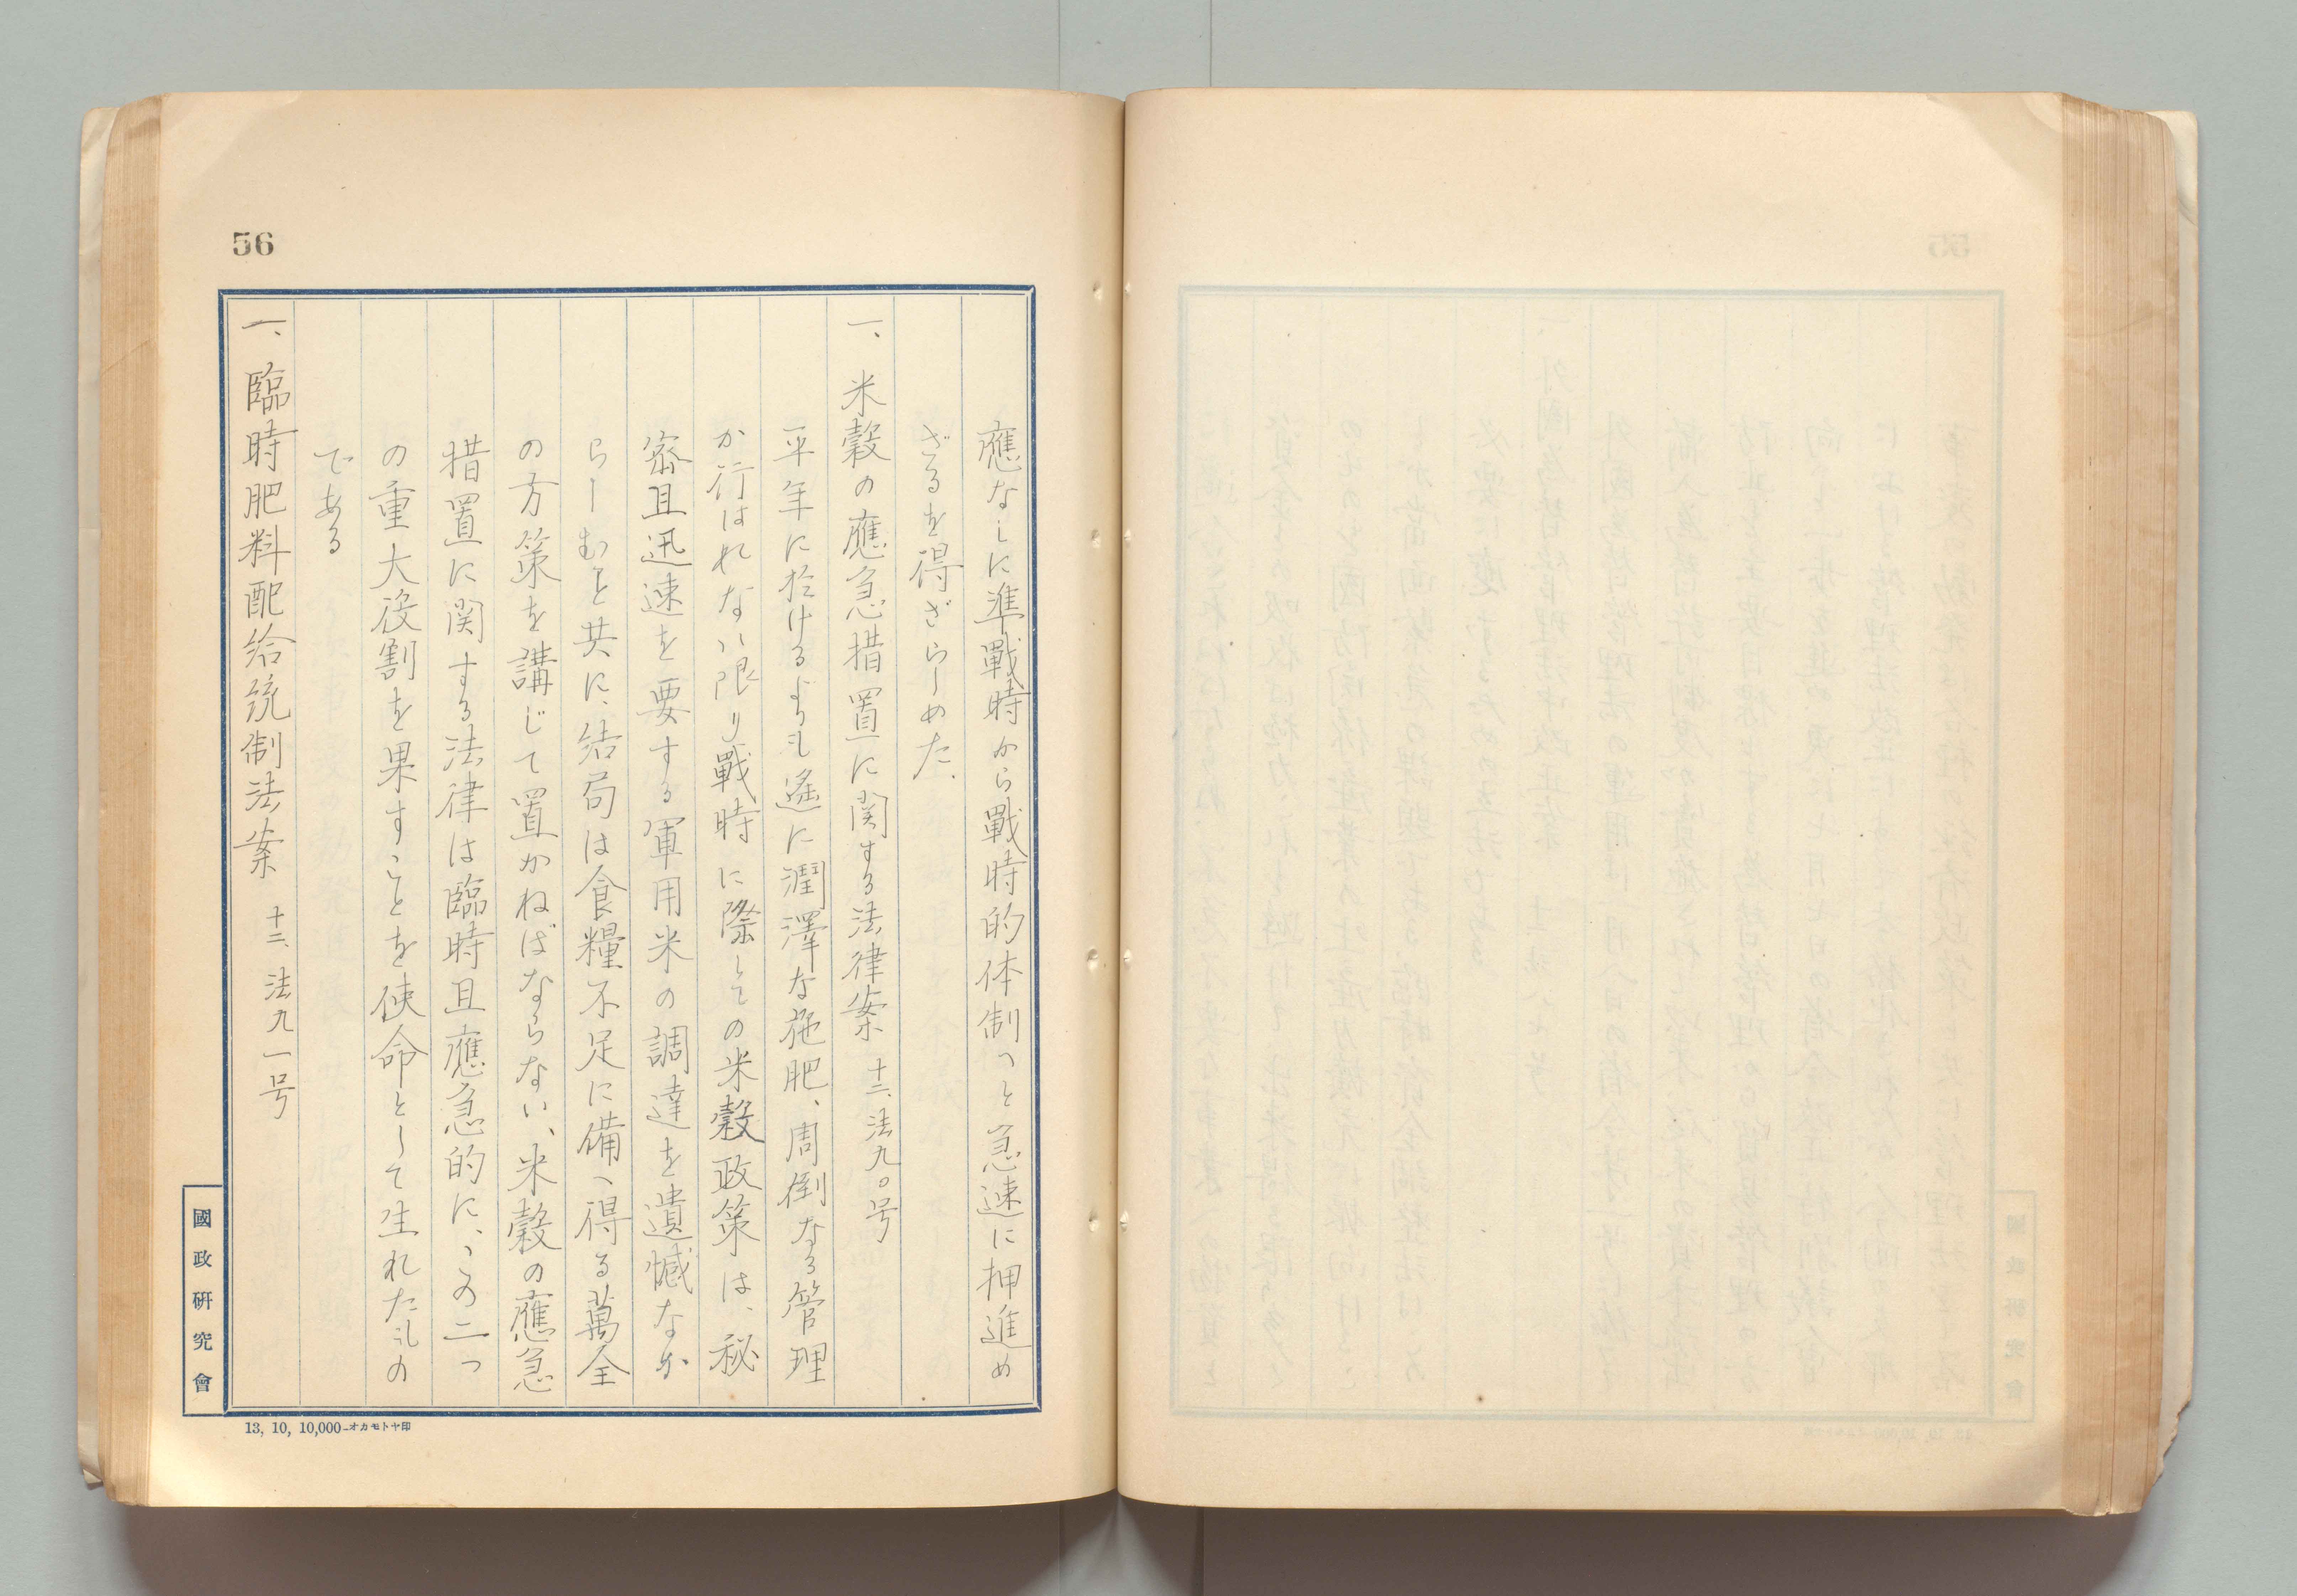 56
應なしに準戰時から戰時的体制へと急速に押進め
ざるを得ざらしめた、
一、米穀の應急措置に関する法律案 十二、法九〇号
平年に於けるよりも遙に潤澤な施肥、周倒なる管理
か行はれない限り戰時に際しての米穀政策は、秘
密且迅速を要する軍用米の調達を遺憾なか
らしむと共に、結局は食糧不足に備へ得る萬全
の方策を講じて置かねばならない、米穀の應急
措置に関する法律は臨時且應急的に、この二つ
の重大役割を果すことを使命として生れたもの
である
一、臨時肥料配給統制法案 十二、法九一号
國政研究會
13, 10, 10,000–オカモトヤ印